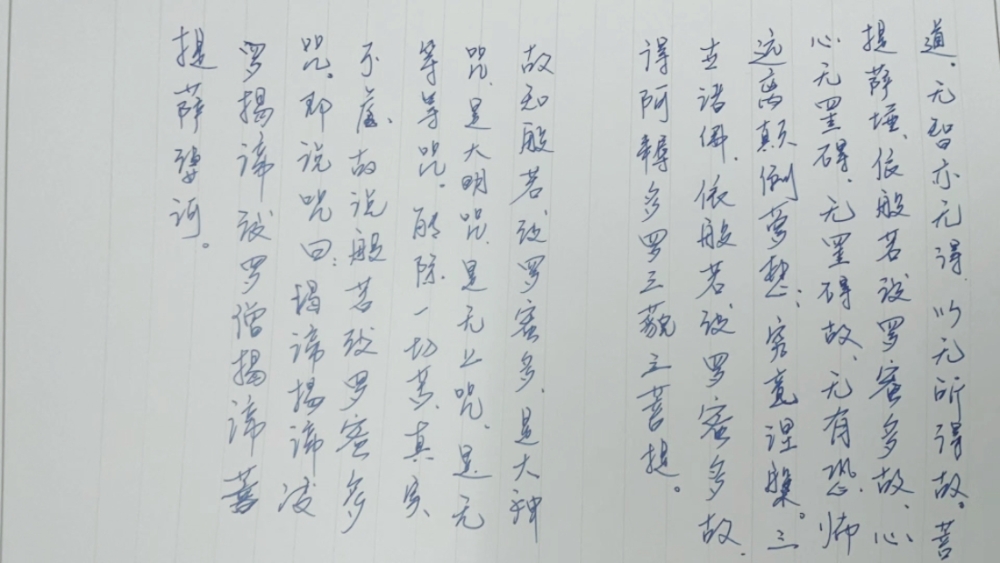 道。无智亦无得。以无所得故。菩
提萨埵，依般若波罗蜜多故，心
心无罣碍，无罣碍故，无有恐怖
远离颠倒梦想，究竟涅槃。三
世诸佛，依般若波罗蜜多故，
得阿耨多罗三藐三菩提。
故知般若波罗蜜多，是大神
咒，是大明咒，是无上咒，是无
等等咒。能除一切苦，真实
不虚，故说般若波罗蜜多
咒。即说咒曰：揭谛揭谛波
罗揭谛波罗僧揭谛菩
提萨婆诃。